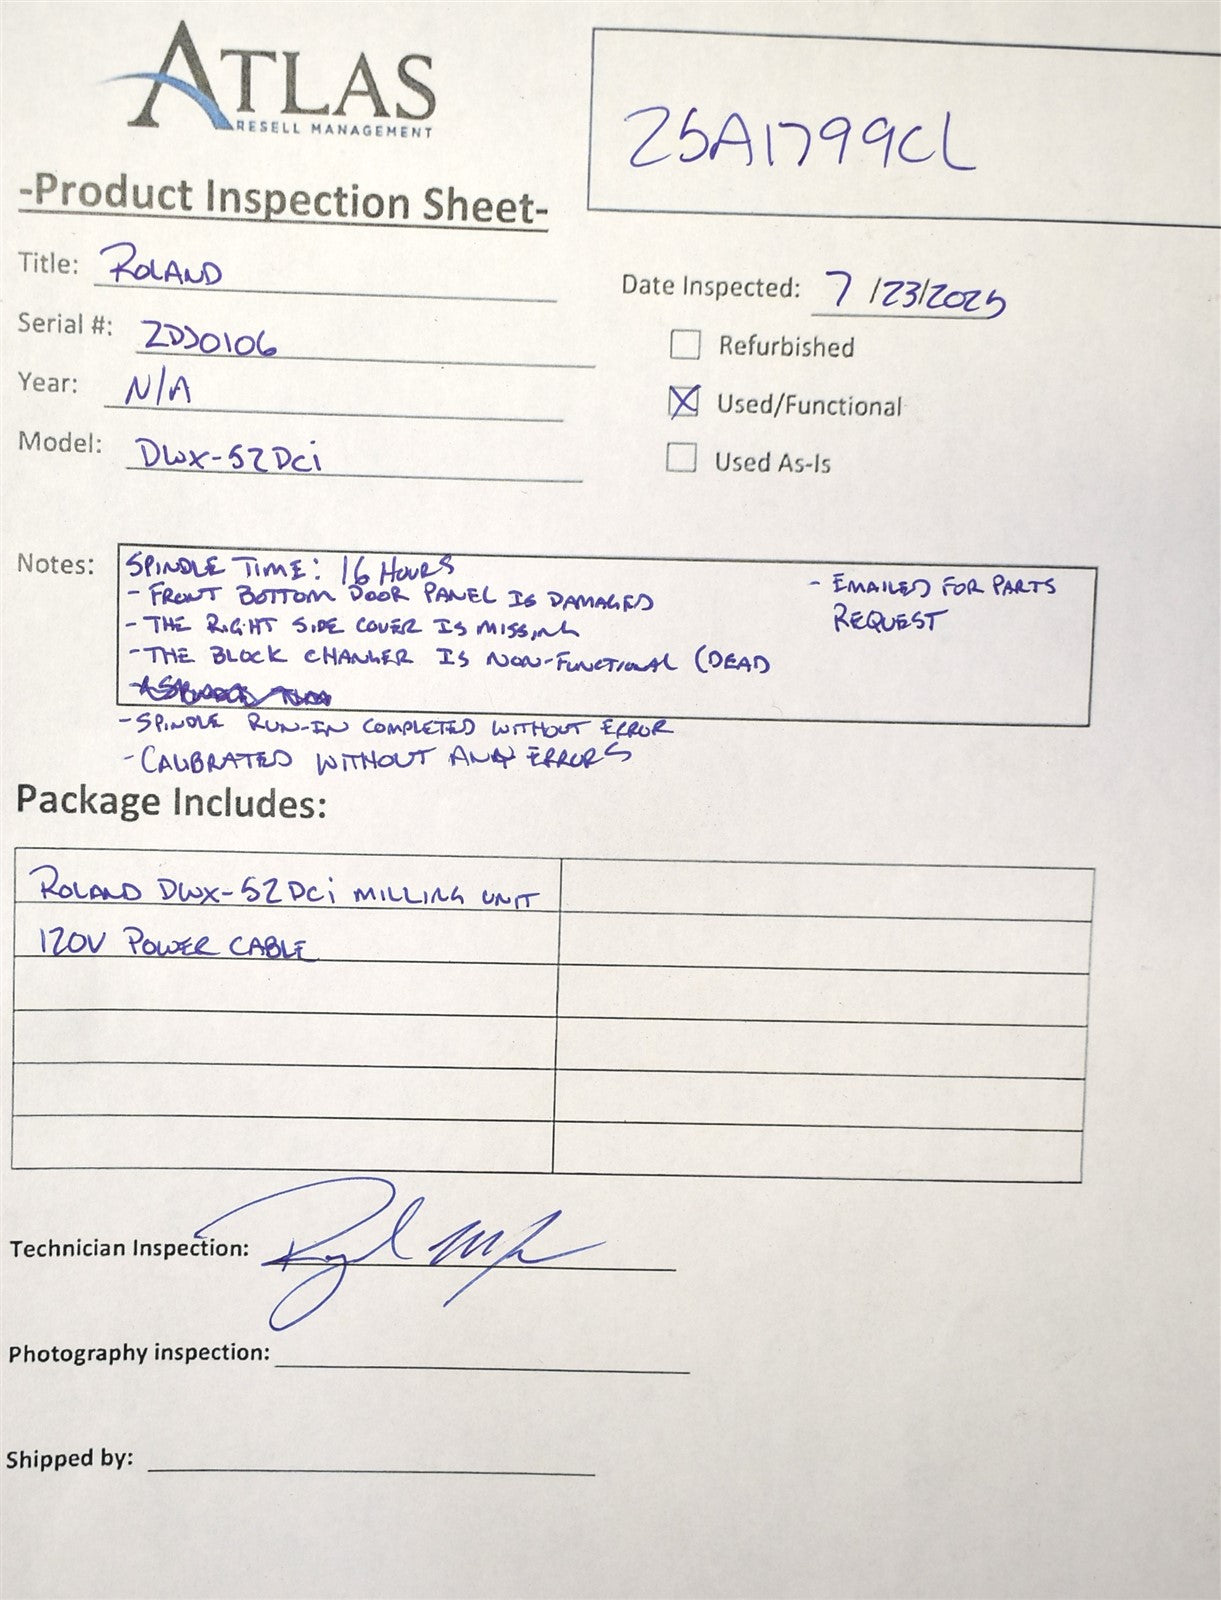 ATLAS
RESELL MANAGEMENT
25A1799CL
-Product Inspection Sheet-
Title: ROLAND
Date Inspected: 7/23/2025
Serial #: ZDD0106
Refurbished
Year: N/A
Used/Functional
Model: DWX-52DCi
Used As-Is
Notes:
SPINDLE TIME: 16 HOURS
- FRONT BOTTOM DOOR PANEL IS DAMAGED
- THE RIGHT SIDE COVER IS MISSING
- THE BLOCK CHANGER IS NON-FUNCTIONAL (DEAD
- SPINDLE RUN-IN COMPLETED WITHOUT ERROR
- CALIBRATED WITHOUT ANY ERRORS
- EMAILED FOR PARTS
REQUEST
Package Includes:
ROLAND DWX-52DCi MILLING UNIT
120V POWER CABLE
Technician Inspection:
Photography inspection:
Shipped by: